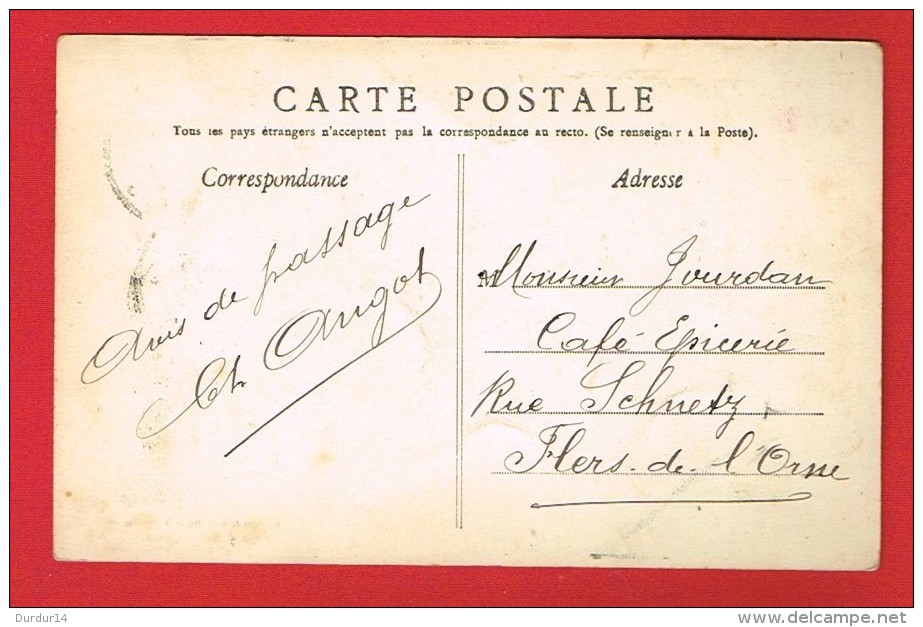 CARTE POSTALE
Tous les pays étrangers n'acceptent pas la correspondance au recto. (Se renseigner à la Poste).
Correspondance
Avis de passage
Ch. Angot
Adresse
Monsieur Jourdan
Café Epicerie
Rue Schnetz
Flers-de-l'Orne
Durdur14
delcampe.net